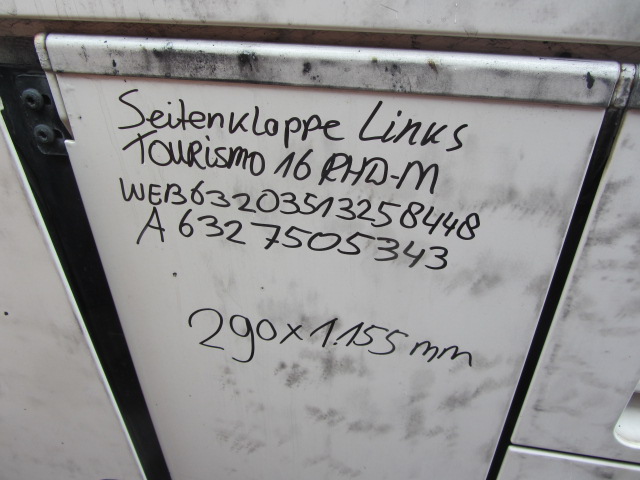 Seitenklappe Links
TOURISMO 16 RHD-M
WEB63203513258448
A 6327505343
290 x 1.155 mm